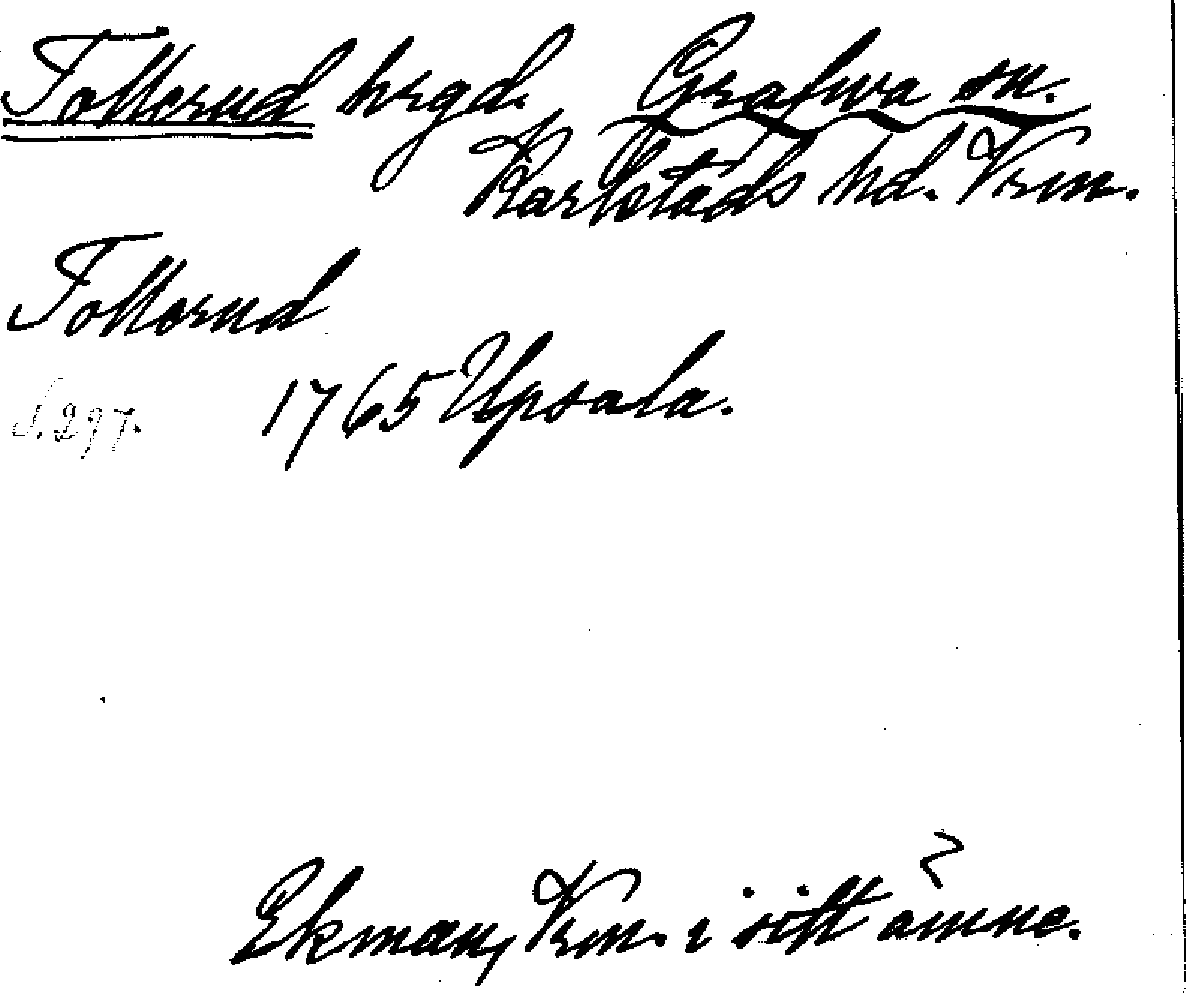 Tollerud hrgd. Grafwa sn.
Karlstads hd. Vrm.
Tollerud
S. 297. 1765 Upsala.
Ekman, Vrm. i sitt ämne.